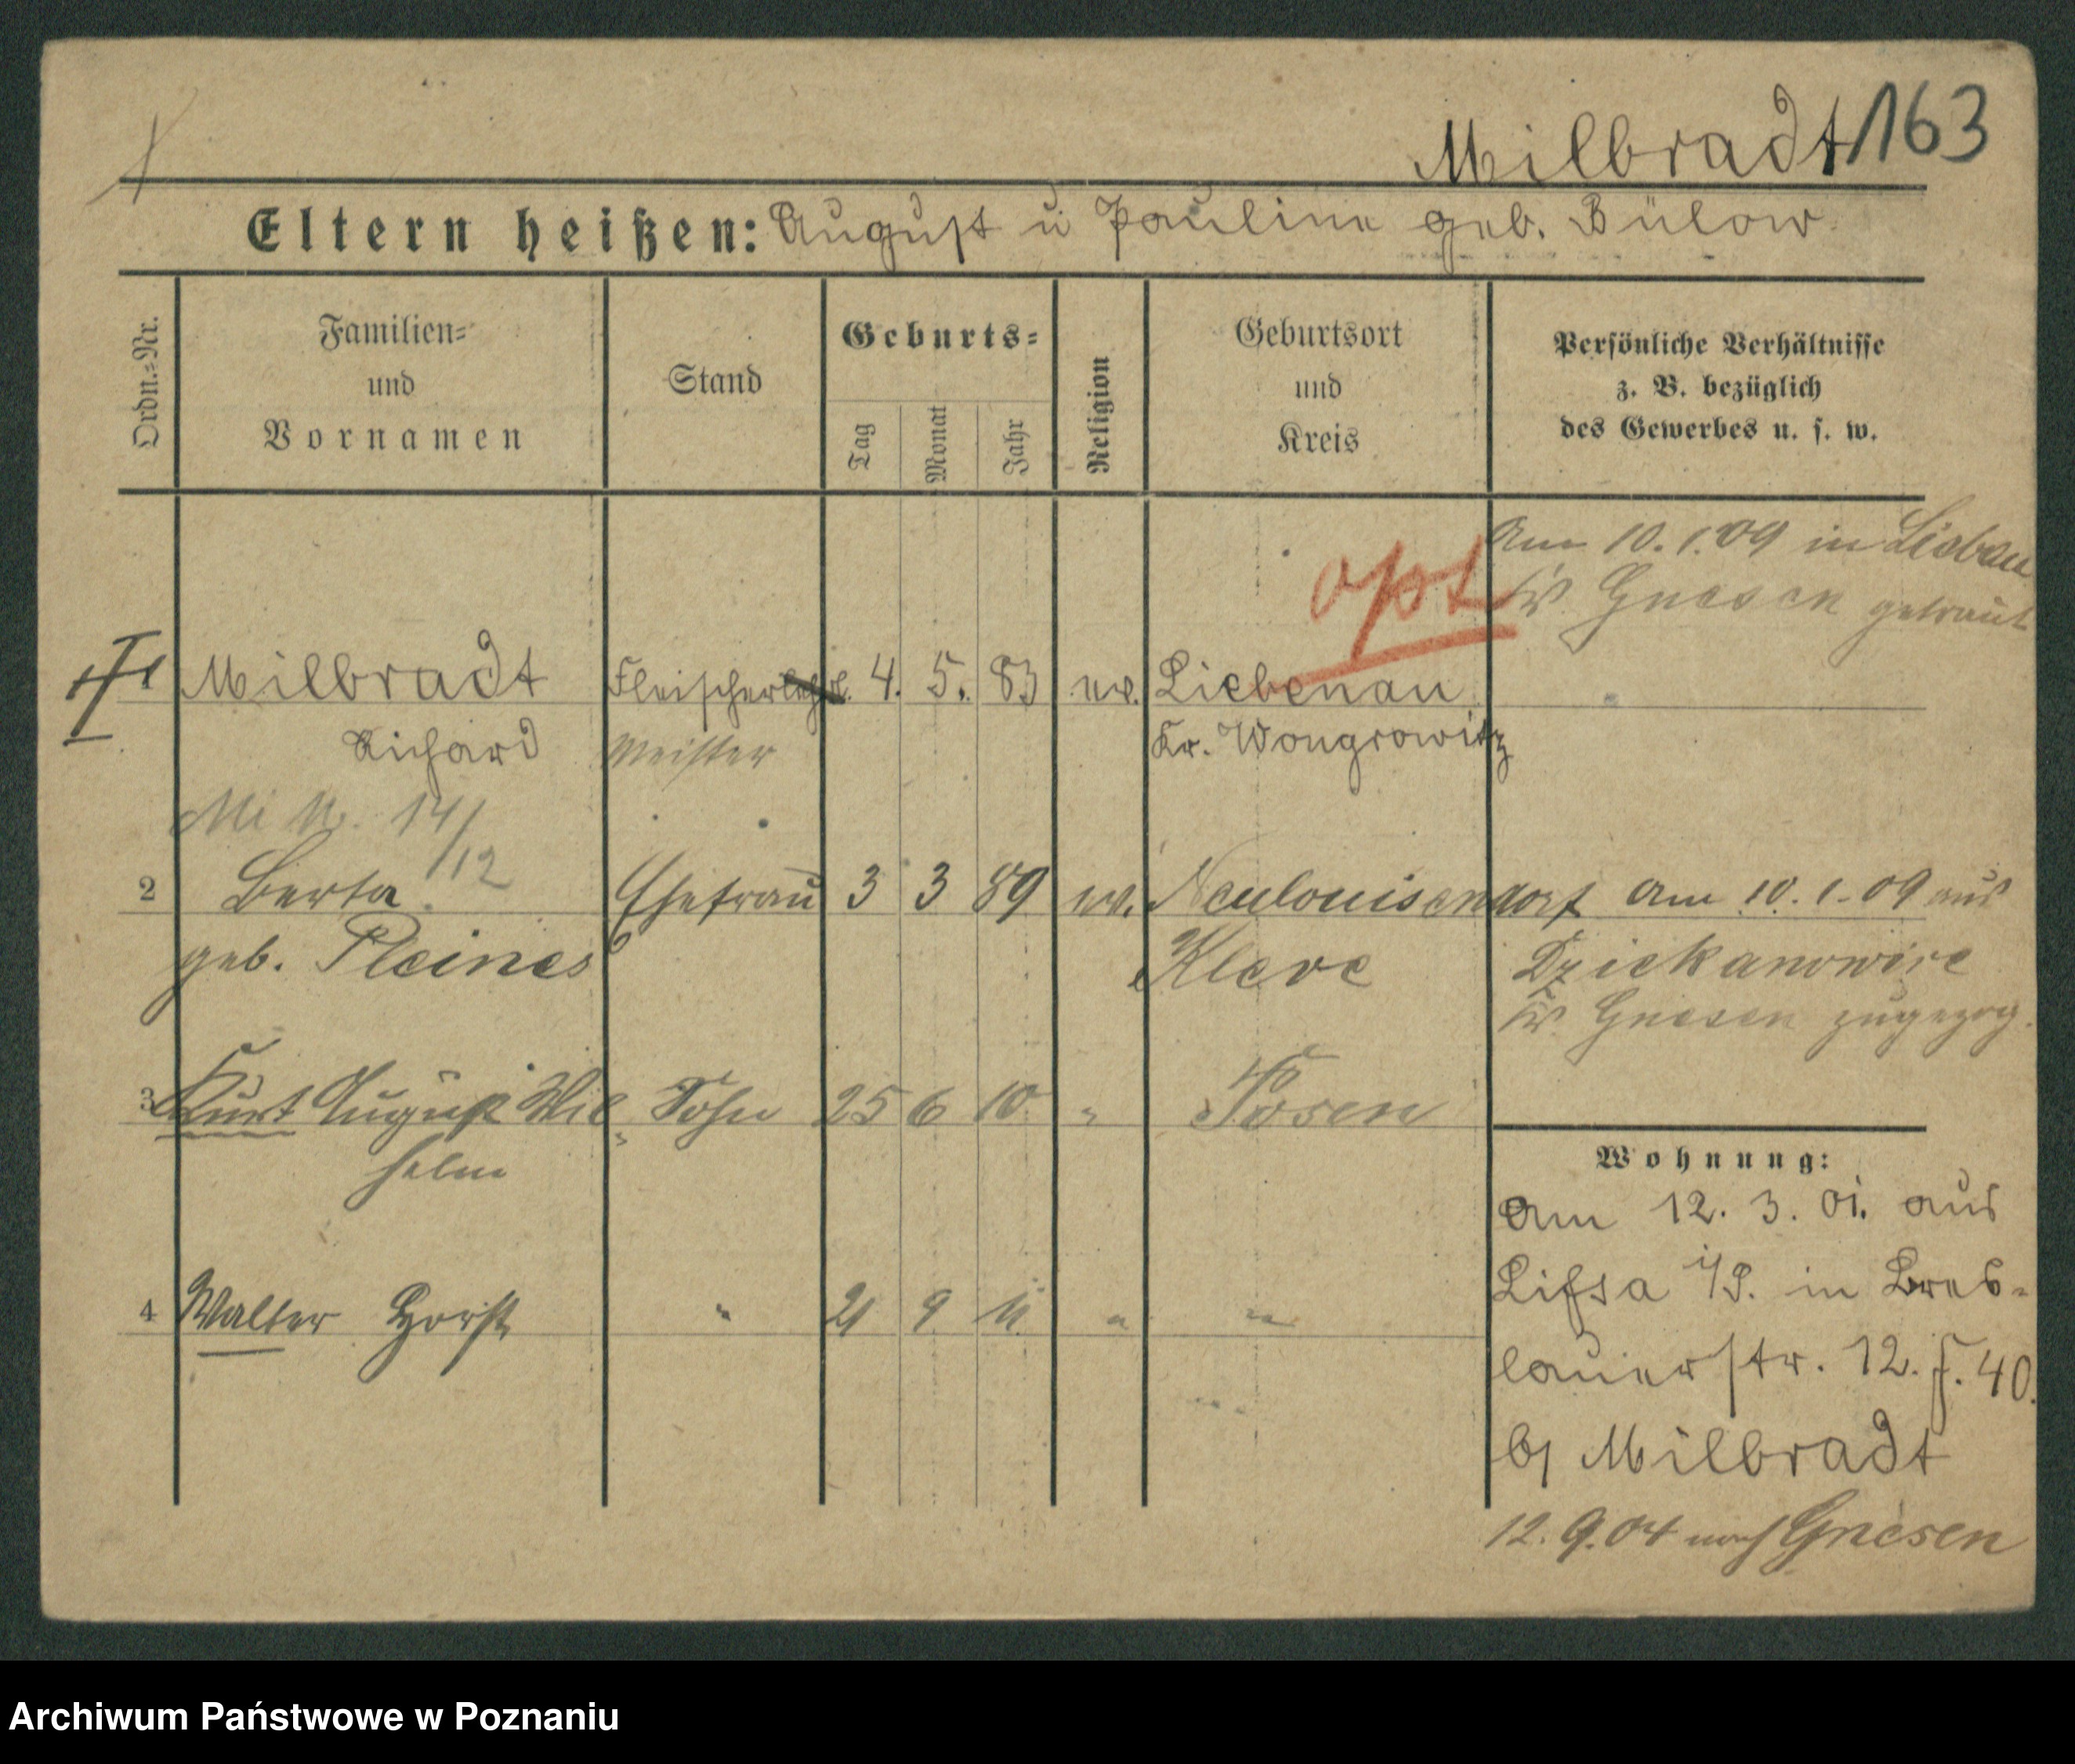 Milbradt 163
Eltern heißen: August u Pauline geb. Bülow
Ordn.-Nr.
Familien-
und
Vornamen
Stand
Geburts-
Tag
Monat
Jahr
Religion
Geburtsort
und
Kreis
Persönliche Verhältnisse
z. B. bezüglich
des Gewerbes u. s. w.
Am 10.1.09 in Lisbau
opt Gnesen getraut
1 Milbradt Fleischerlehrl. 4. 5. 83 ev. Liebenau
Richard Meister Kr. Wongrowitz
14/12
2 Berta Ehefrau 3 3 89 ev. Neulouisendorf Am 10.1.09 aus
geb. Pleines Kleve Dziekanowice
Gnesen zugezog.
3 Kurt August Wil- Sohn 25 6 10 " Posen
helm
4 Walter Horst " 21 9 11 " "
Wohnung:
Am 12. 3. 01. aus
Lissa i/P. in Bres-
lauerstr. 12. 40.
b/ Milbradt
12.9.04 nach Gnesen
Archiwum Państwowe w Poznaniu